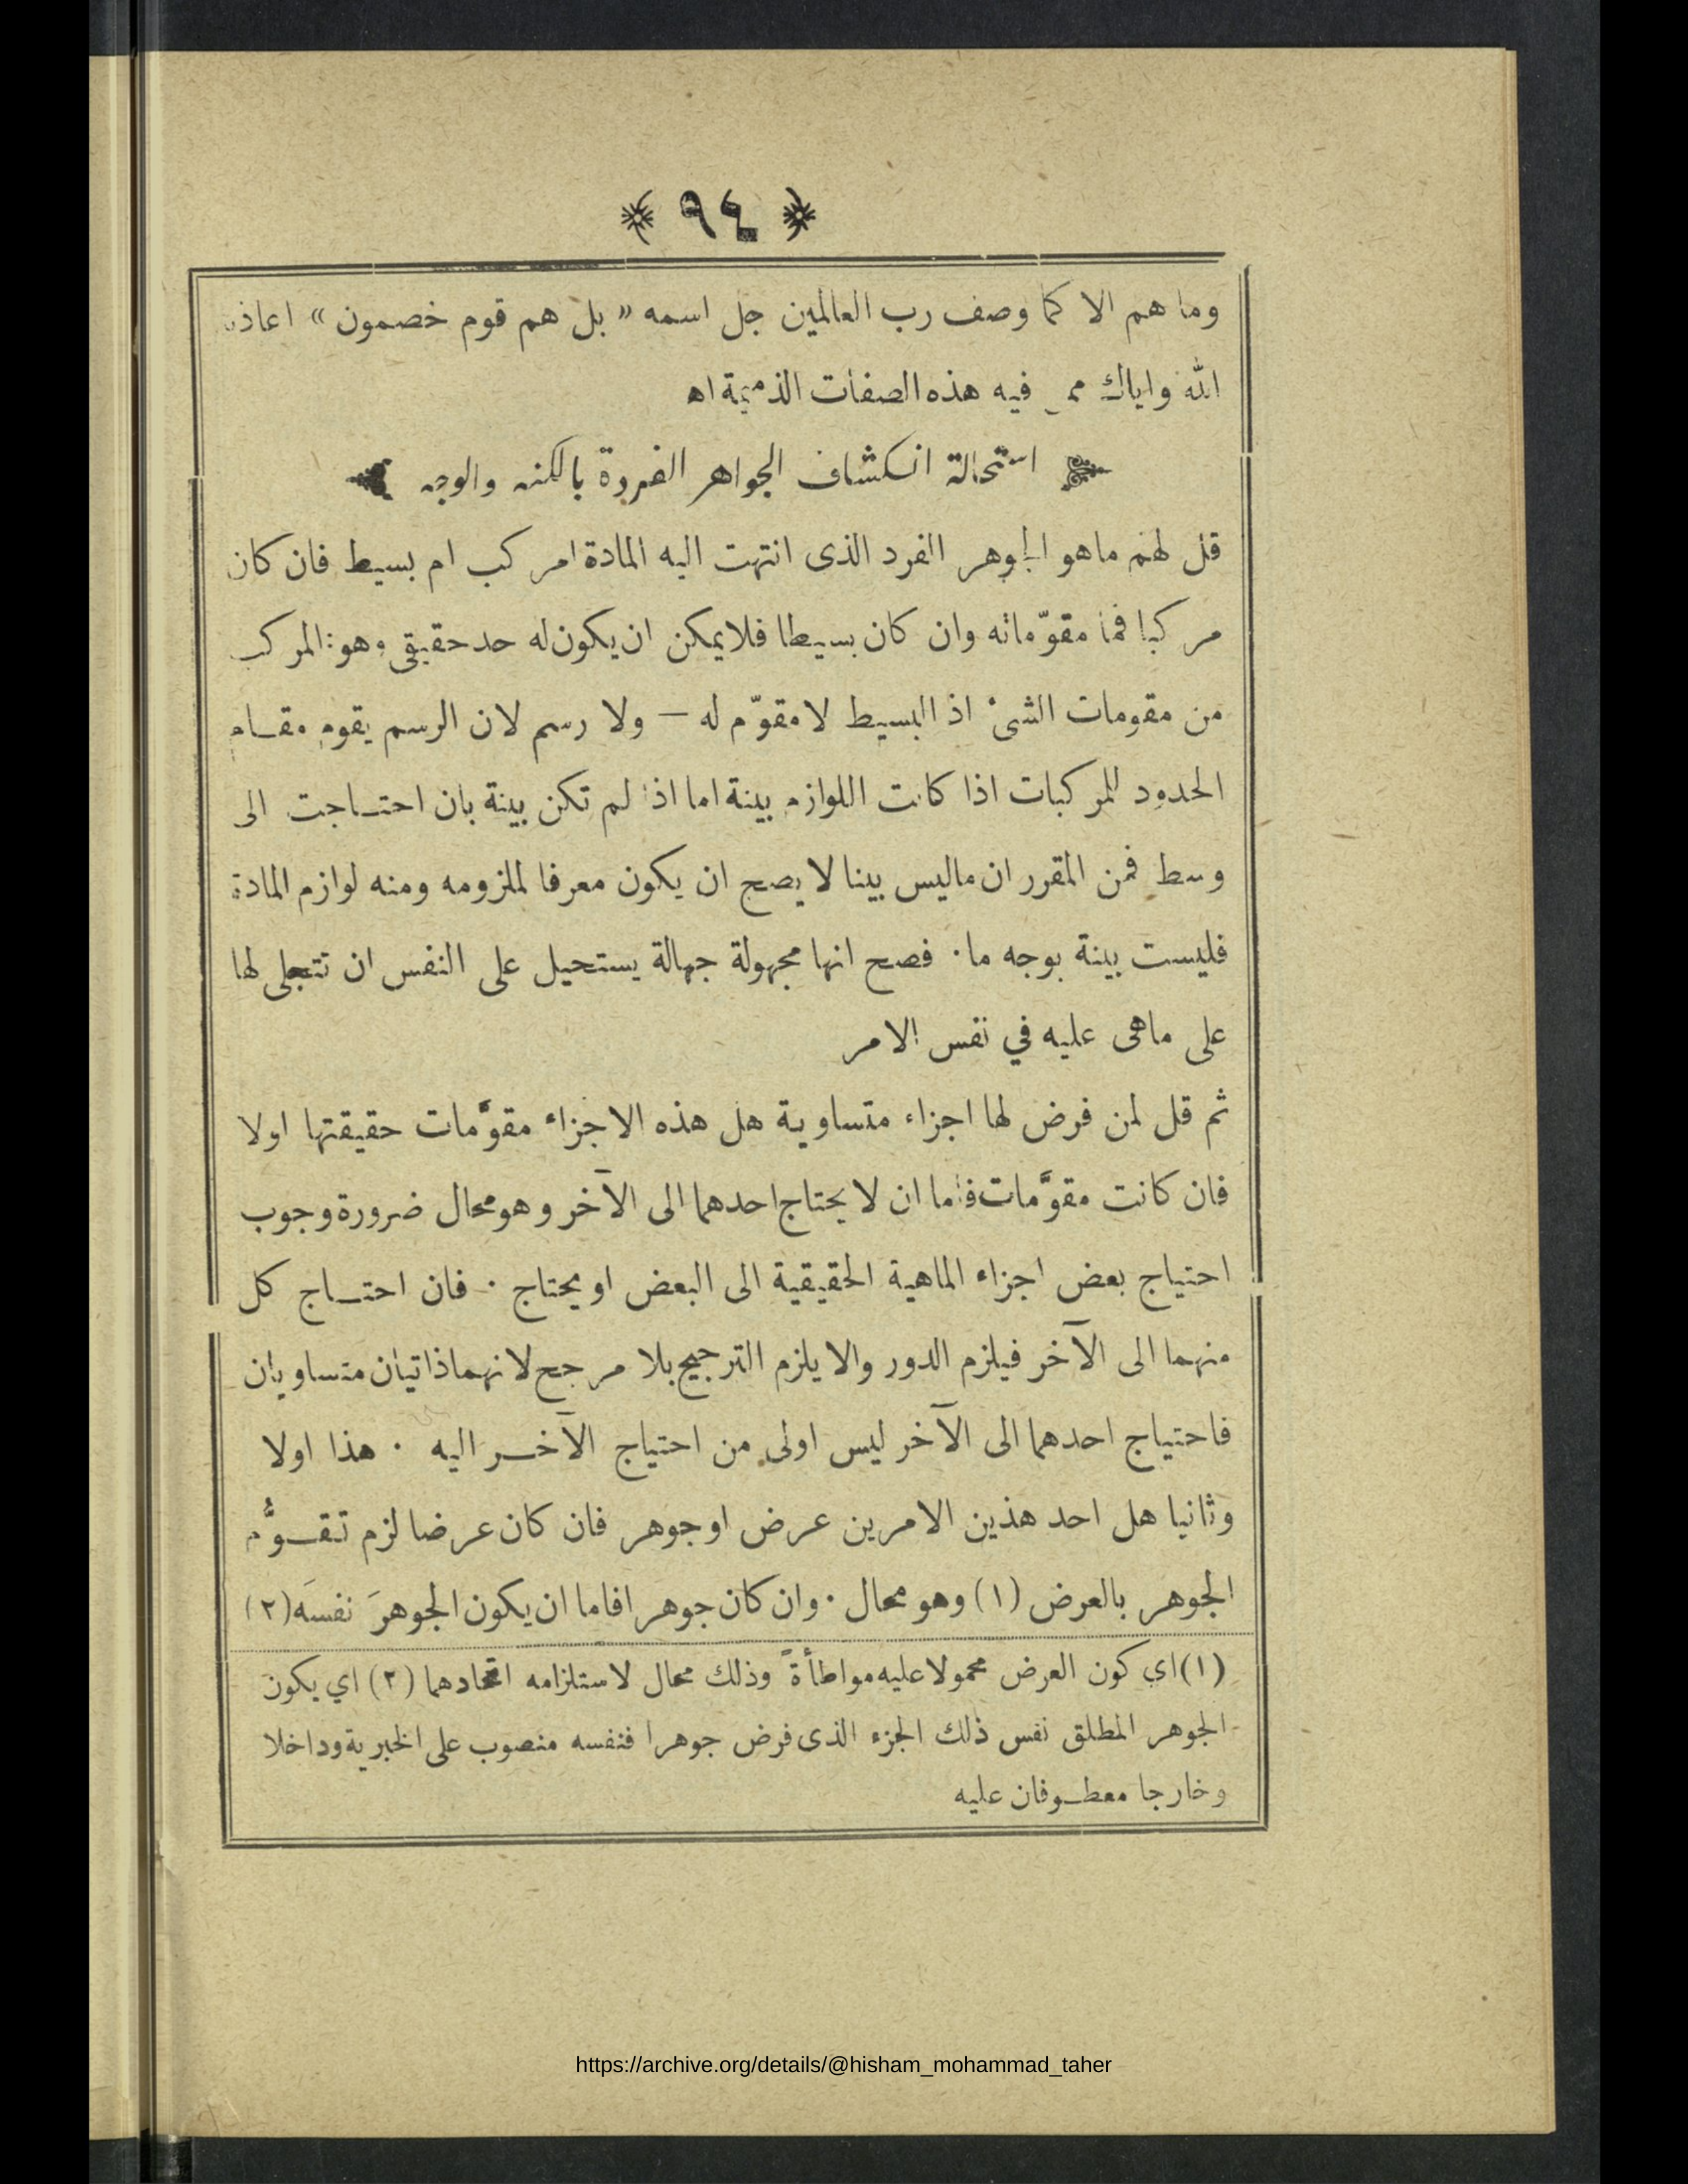 ﴿ ٩٤ ﴾
وما هم الا كما وصف رب العالمين جل اسمه « بل هم قوم خصمون » اعاذنا
الله واياك ممن فيه هذه الصفات الذميمة اه
استحالة انكشاف الجواهر الفردة بالكنه والوجه
قل لهم ماهو الجوهر الفرد الذى انتهت اليه المادة امركب ام بسيط فان كان
مركبا فما مقوّماته وان كان بسيطا فلايمكن ان يكون له حد حقيقى وهو : المركب
من مقومات الشىء اذ البسيط لا مقوّم له — ولا رسم لان الرسم يقوم مقام
الحدود للمركبات اذا كانت اللوازم بينة اما اذا لم تكن بينة بان احتاجت الى
وسط فمن المقرر ان ماليس بينا لا يصح ان يكون معرفا لملزومه ومنه لوازم المادة
فليست بينة بوجه ما . فصح انها مجهولة جهالة يستحيل على النفس ان تتجلى لها
على ماهى عليه في نفس الامر
ثم قل لمن فرض لها اجزاء متساوية هل هذه الاجزاء مقوَّمات حقيقتها اولا
فان كانت مقوَّمات فاما ان لا يحتاج احدهما الى الآخر وهو محال ضرورة وجوب
احتياج بعض اجزاء الماهية الحقيقية الى البعض او يحتاج . فان احتاج كل
منهما الى الآخر فيلزم الدور والا يلزم الترجيح بلا مرجح لانهما ذاتيان متساويان
فاحتياج احدهما الى الآخر ليس اولى من احتياج الآخر اليه . هذا اولا
وثانيا هل احد هذين الامرين عرض او جوهر فان كان عرضا لزم تقوُّم
الجوهر بالعرض (١) وهو محال . وان كان جوهرا فاما ان يكون الجوهرَ نفسَه (٢)
(١) اي كون العرض محمولا عليه مواطأةً وذلك محال لاستلزامه اتحادهما (٢) اي يكون
الجوهر المطلق نفس ذلك الجزء الذى فرض جوهرا فنفسه منصوب على الخبرية وداخلا
وخارجا معطوفان عليه
https://archive.org/details/@hisham_mohammad_taher